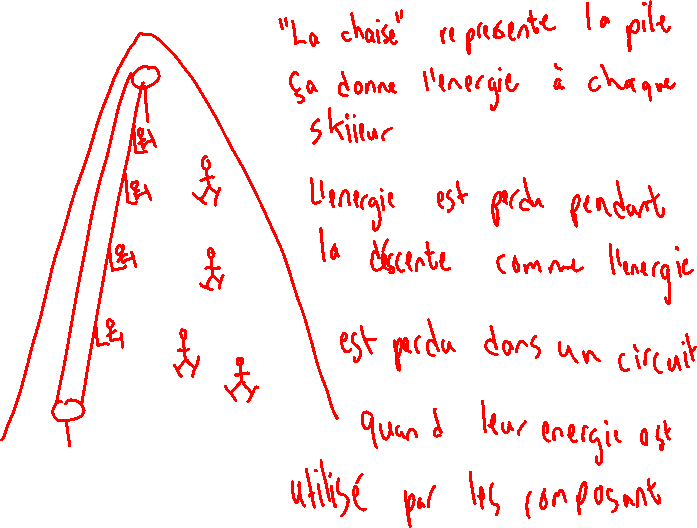 "La chaise" represente la pile
ça donne l'energie à chaque
skiieur
L'energie est perdu pendant
la déscente comme l'energie
est perdu dans un circuit
quand leur energie est
utilisé par les composant